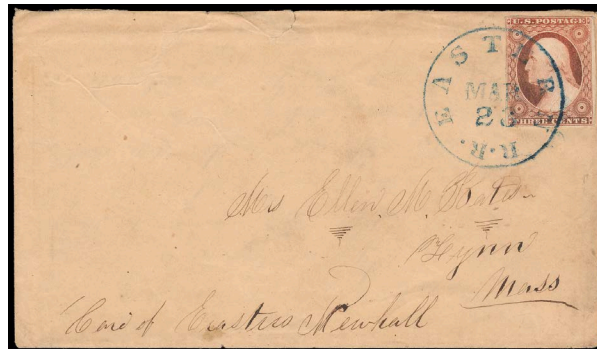 U.S. POSTAGE
THREE CENTS
EASTERN
R.R.
MAR
23
Mrs Ellen M.
Lynn
Mass
Care of Erastus Newhall